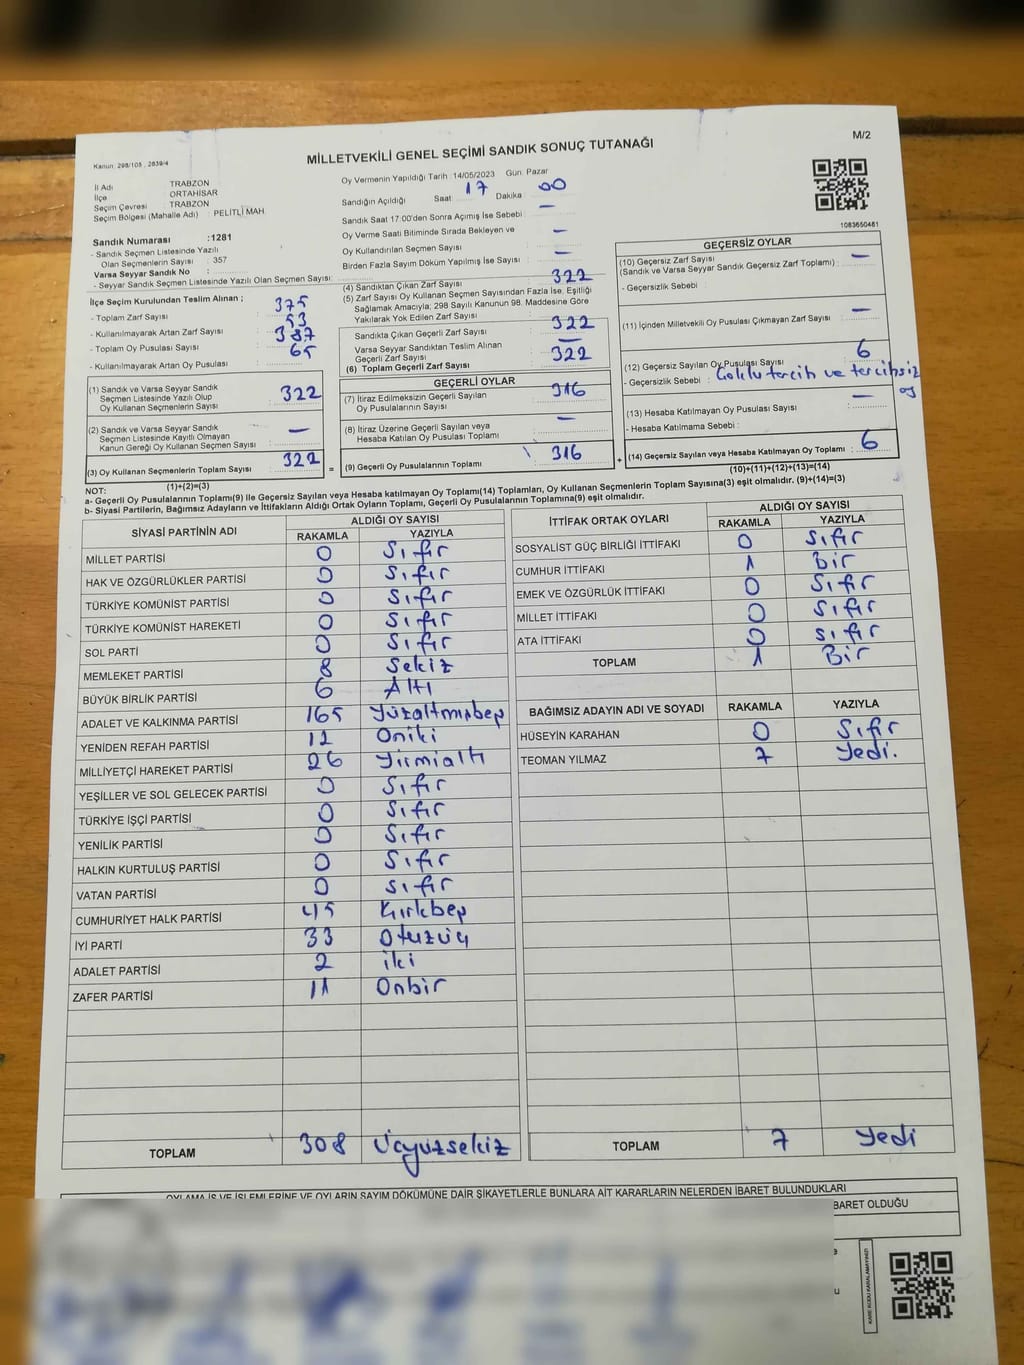 M/2
Kanun: 298/105 , 2839/4
MİLLETVEKİLİ GENEL SEÇİMİ SANDIK SONUÇ TUTANAĞI
İl Adı TRABZON
İlçe ORTAHİSAR
Seçim Çevresi TRABZON
Seçim Bölgesi (Mahalle Adı) : PELİTLİ MAH
Oy Vermenin Yapıldığı Tarih : 14/05/2023 Gün: Pazar
Sandığın Açıldığı Saat: 17 Dakika 00
Sandık Saat 17:00'den Sonra Açımış İse Sebebi : –
Oy Verme Saati Bitiminde Sırada Bekleyen ve
Oy Kullandırılan Seçmen Sayısı –
Birden Fazla Sayım Döküm Yapılmış İse Sayısı : –
1083650461
Sandık Numarası :1281
- Sandık Seçmen Listesinde Yazılı
Olan Seçmenlerin Sayısı : 357
Varsa Seyyar Sandık No :
- Seyyar Sandık Seçmen Listesinde Yazılı Olan Seçmen Sayısı:
İlçe Seçim Kurulundan Teslim Alınan ;
- Toplam Zarf Sayısı : 375
- Kullanılmayarak Artan Zarf Sayısı : 53
- Toplam Oy Pusulası Sayısı : 387
- Kullanılmayarak Artan Oy Pusulası : 65
(1) Sandık ve Varsa Seyyar Sandık
Seçmen Listesinde Yazılı Olup
Oy Kullanan Seçmenlerin Sayısı : 322
(2) Sandık ve Varsa Seyyar Sandık
Seçmen Listesinde Kayıtlı Olmayan
Kanun Gereği Oy Kullanan Seçmen Sayısı : –
(3) Oy Kullanan Seçmenlerin Toplam Sayısı : 322
(1)+(2)=(3)
(4) Sandıktan Çıkan Zarf Sayısı : 322
(5) Zarf Sayısı Oy Kullanan Seçmen Sayısından Fazla İse, Eşitliği
Sağlamak Amacıyla; 298 Sayılı Kanunun 98. Maddesine Göre
Yakılarak Yok Edilen Zarf Sayısı :
Sandıkta Çıkan Geçerli Zarf Sayısı : 322
Varsa Seyyar Sandıktan Teslim Alınan
Geçerli Zarf Sayısı : –
(6) Toplam Geçerli Zarf Sayısı : 322
GEÇERLİ OYLAR
(7) İtiraz Edilmeksizin Geçerli Sayılan
Oy Pusulalarının Sayısı : 316
(8) İtiraz Üzerine Geçerli Sayılan veya
Hesaba Katılan Oy Pusulası Toplamı : –
= (9) Geçerli Oy Pusulalarının Toplamı : 316 +
GEÇERSİZ OYLAR
(10) Geçersiz Zarf Sayısı
(Sandık ve Varsa Seyyar Sandık Geçersiz Zarf Toplamı) : –
- Geçersizlik Sebebi :
(11) İçinden Milletvekili Oy Pusulası Çıkmayan Zarf Sayısı : –
(12) Geçersiz Sayılan Oy Pusulası Sayısı : 6
- Geçersizlik Sebebi : Çoklu tercih ve tercihsiz
oy
(13) Hesaba Katılmayan Oy Pusulası Sayısı : –
- Hesaba Katılmama Sebebi :
(14) Geçersiz Sayılan veya Hesaba Katılmayan Oy Toplamı : 6
(10)+(11)+(12)+(13)=(14)
NOT:
a- Geçerli Oy Pusulalarının Toplamı(9) ile Geçersiz Sayılan veya Hesaba katılmayan Oy Toplamı(14) Toplamları, Oy Kullanan Seçmenlerin Toplam Sayısına(3) eşit olmalıdır. (9)+(14)=(3)
b- Siyasi Partilerin, Bağımsız Adayların ve İttifakların Aldığı Ortak Oyların Toplamı, Geçerli Oy Pusulalarının Toplamına(9) eşit olmalıdır.
SİYASİ PARTİNİN ADI ALDIĞI OY SAYISI
RAKAMLA YAZIYLA
MİLLET PARTİSİ 0 Sıfır
HAK VE ÖZGÜRLÜKLER PARTİSİ 0 Sıfır
TÜRKİYE KOMÜNİST PARTİSİ 0 Sıfır
TÜRKİYE KOMÜNİST HAREKETİ 0 Sıfır
SOL PARTİ 0 Sıfır
MEMLEKET PARTİSİ 8 Sekiz
BÜYÜK BİRLİK PARTİSİ 6 Altı
ADALET VE KALKINMA PARTİSİ 165 Yüzaltmışbeş
YENİDEN REFAH PARTİSİ 12 Oniki
MİLLİYETÇİ HAREKET PARTİSİ 26 Yirmialtı
YEŞİLLER VE SOL GELECEK PARTİSİ 0 Sıfır
TÜRKİYE İŞÇİ PARTİSİ 0 Sıfır
YENİLİK PARTİSİ 0 Sıfır
HALKIN KURTULUŞ PARTİSİ 0 Sıfır
VATAN PARTİSİ 0 Sıfır
CUMHURİYET HALK PARTİSİ 45 Kırkbeş
İYİ PARTİ 33 Otuzüç
ADALET PARTİSİ 2 iki
ZAFER PARTİSİ 11 Onbir
TOPLAM 308 Üçyüzsekiz
İTTİFAK ORTAK OYLARI ALDIĞI OY SAYISI
RAKAMLA YAZIYLA
SOSYALİST GÜÇ BİRLİĞİ İTTİFAKI 0 Sıfır
CUMHUR İTTİFAKI 1 Bir
EMEK VE ÖZGÜRLÜK İTTİFAKI 0 Sıfır
MİLLET İTTİFAKI 0 Sıfır
ATA İTTİFAKI 0 Sıfır
TOPLAM 1 Bir
BAĞIMSIZ ADAYIN ADI VE SOYADI RAKAMLA YAZIYLA
HÜSEYİN KARAHAN 0 Sıfır
TEOMAN YILMAZ 7 Yedi.
TOPLAM 7 Yedi
OYLAMA İŞ VE İŞLEMLERİNE VE OYLARIN SAYIM DÖKÜMÜNE DAİR ŞİKAYETLERLE BUNLARA AİT KARARLARIN NELERDEN İBARET BULUNDUKLARI
BARET OLDUĞU
KARE KODU KARALAMAYINIZ!